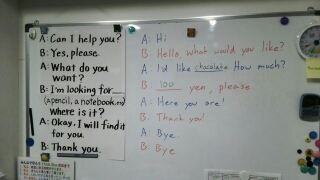 A: Can I help you?
B: Yes, please.
A: What do you
want?
B: I'm looking for
(a pencil, a notebook...)
Where is it?
A: Okay, I will find it
for you.
B: Thank you.
A: Hi
B: Hello, what would you like?
A: I'd like chocolate How much?
B: 100 yen, please
A: Here you are!
B: Thank you!
A: Bye.
B: Bye